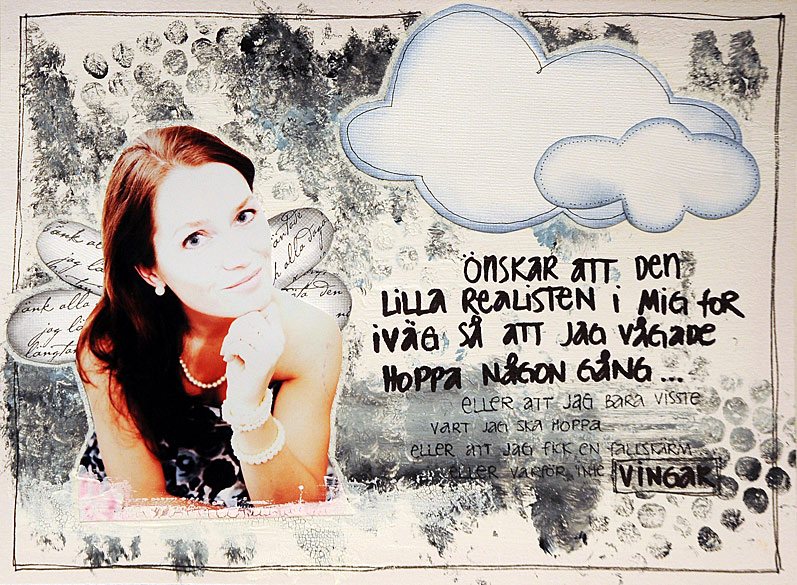 ÖNSKAR ATT DEN
LILLA REALISTEN I MIG FOR
IVÄG SÅ ATT JAG VÅGADE
HOPPA NÅGON GÅNG ...
ELLER ATT JAG BARA VISSTE
VART JAG SKA HOPPA
ELLER ATT JAG FICK EN FALLSKÄRM
ELLER VARFÖR INTE VINGAR
änk alla
jag lä
änk alla
jag lä
längtan
alla dage
äta den